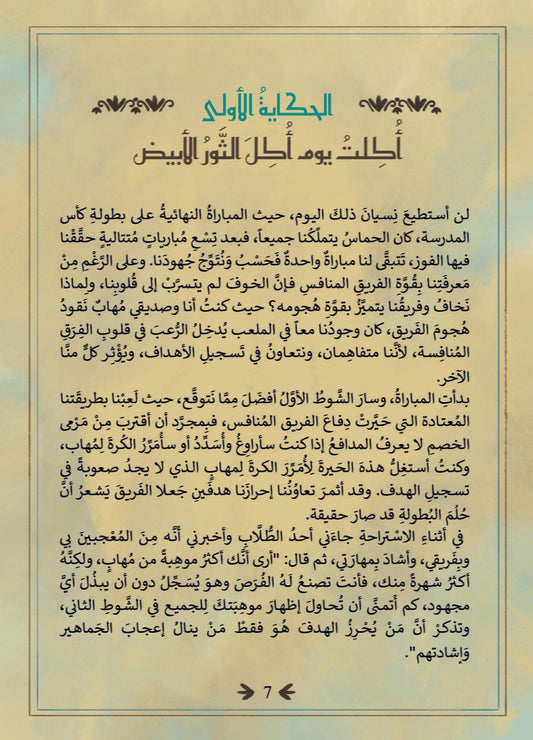 الحكايةُ الأولى
أُكِلتُ يوم أُكِلَ الثَّورُ الأبيض
لن أستطيعَ نِسيانَ ذلكَ اليوم، حيث المباراةُ النهائيةُ على بطولةِ كأس
المدرسة، كان الحماسُ يتملّكُنا جميعاً، فبعد تِسْعِ مُبارياتٍ مُتتاليةٍ حقَّقْنا
فيها الفوز، تَتبقَّى لنا مباراةٌ واحدةٌ فَحَسْبُ وَنُتَوِّجُ جُهودَنا. وعلى الرَّغْمِ مِنْ
مَعرفَتِنا بِقُوَّةِ الفريقِ المنافسِ فإنَّ الخوفَ لم يتسرَّبْ إلى قُلوبِنا، ولِماذا
نَخافُ وفريقُنا يتميَّزُ بقوَّةِ هُجومه؟ حيث كنتُ أنا وصديقي مُهابٌ نَقودُ
هُجومَ الفَريق، كان وجودُنا معاً في الملعب يُدخِلُ الرُّعبَ في قلوبِ الفِرَقِ
المُنافِسة، لأنَّنا متفاهِمان، ونتعاونُ في تَسجيلِ الأهداف، ويُؤْثِر كلٌّ منَّا
الآخر.
بدأتِ المباراةُ، وسارَ الشَّوطُ الأوَّلُ أفضَلَ مِمَّا نَتوقَّع، حيث لَعِبْنا بطريقَتنا
المُعتادة التي حَيَّرتْ دِفاعَ الفريق المُنافس، فبِمجرَّد أن أقتربَ مِنْ مَرْمى
الخصمِ لا يعرفُ المدافعُ إذا كنتُ سأراوِغُ وأُسَدِّدُ أو سأُمَرِّرُ الكُرةَ لِمُهاب،
وكنتُ أستغِلُّ هذهَ الحَيرةَ لِأُمَرِّرَ الكرةَ لِمهابٍ الذي لا يجدُ صعوبةً في
تسجيلِ الهدف. وقد أثمرَ تعاوُنُنا إحرازَنا هدفَينِ جَعلا الفَريقَ يَشعرُ أنَّ
حُلْمَ البُطولةِ قد صارَ حقيقة.
في أثناءِ الاسْتراحةِ جاءَني أحدُ الطُّلَّابِ وأخبرني أنَّه مِنَ المُعْجبينَ بي
وبِفَريقي، وأشادَ بِمهارَتي، ثم قال: "أرى أنَّك أكثرُ موهِبةً من مُهابٍ، ولكِنَّهُ
أكثرُ شهرةً مِنك، فأنتَ تصنعُ لَهُ الفُرَصَ وهوَ يُسَجِّلُ دون أن يبذُلَ أيَّ
مجهود، كم أتمنَّى أن تُحاولَ إظهارَ موهِبَتكَ لِلجميع في الشَّوطِ الثاني،
وتذكرْ أنَّ مَنْ يُحْرِزُ الهدفَ هُوَ فقطْ مَنْ ينالُ إعجابَ الجَماهير
وَإشادتهم".
7